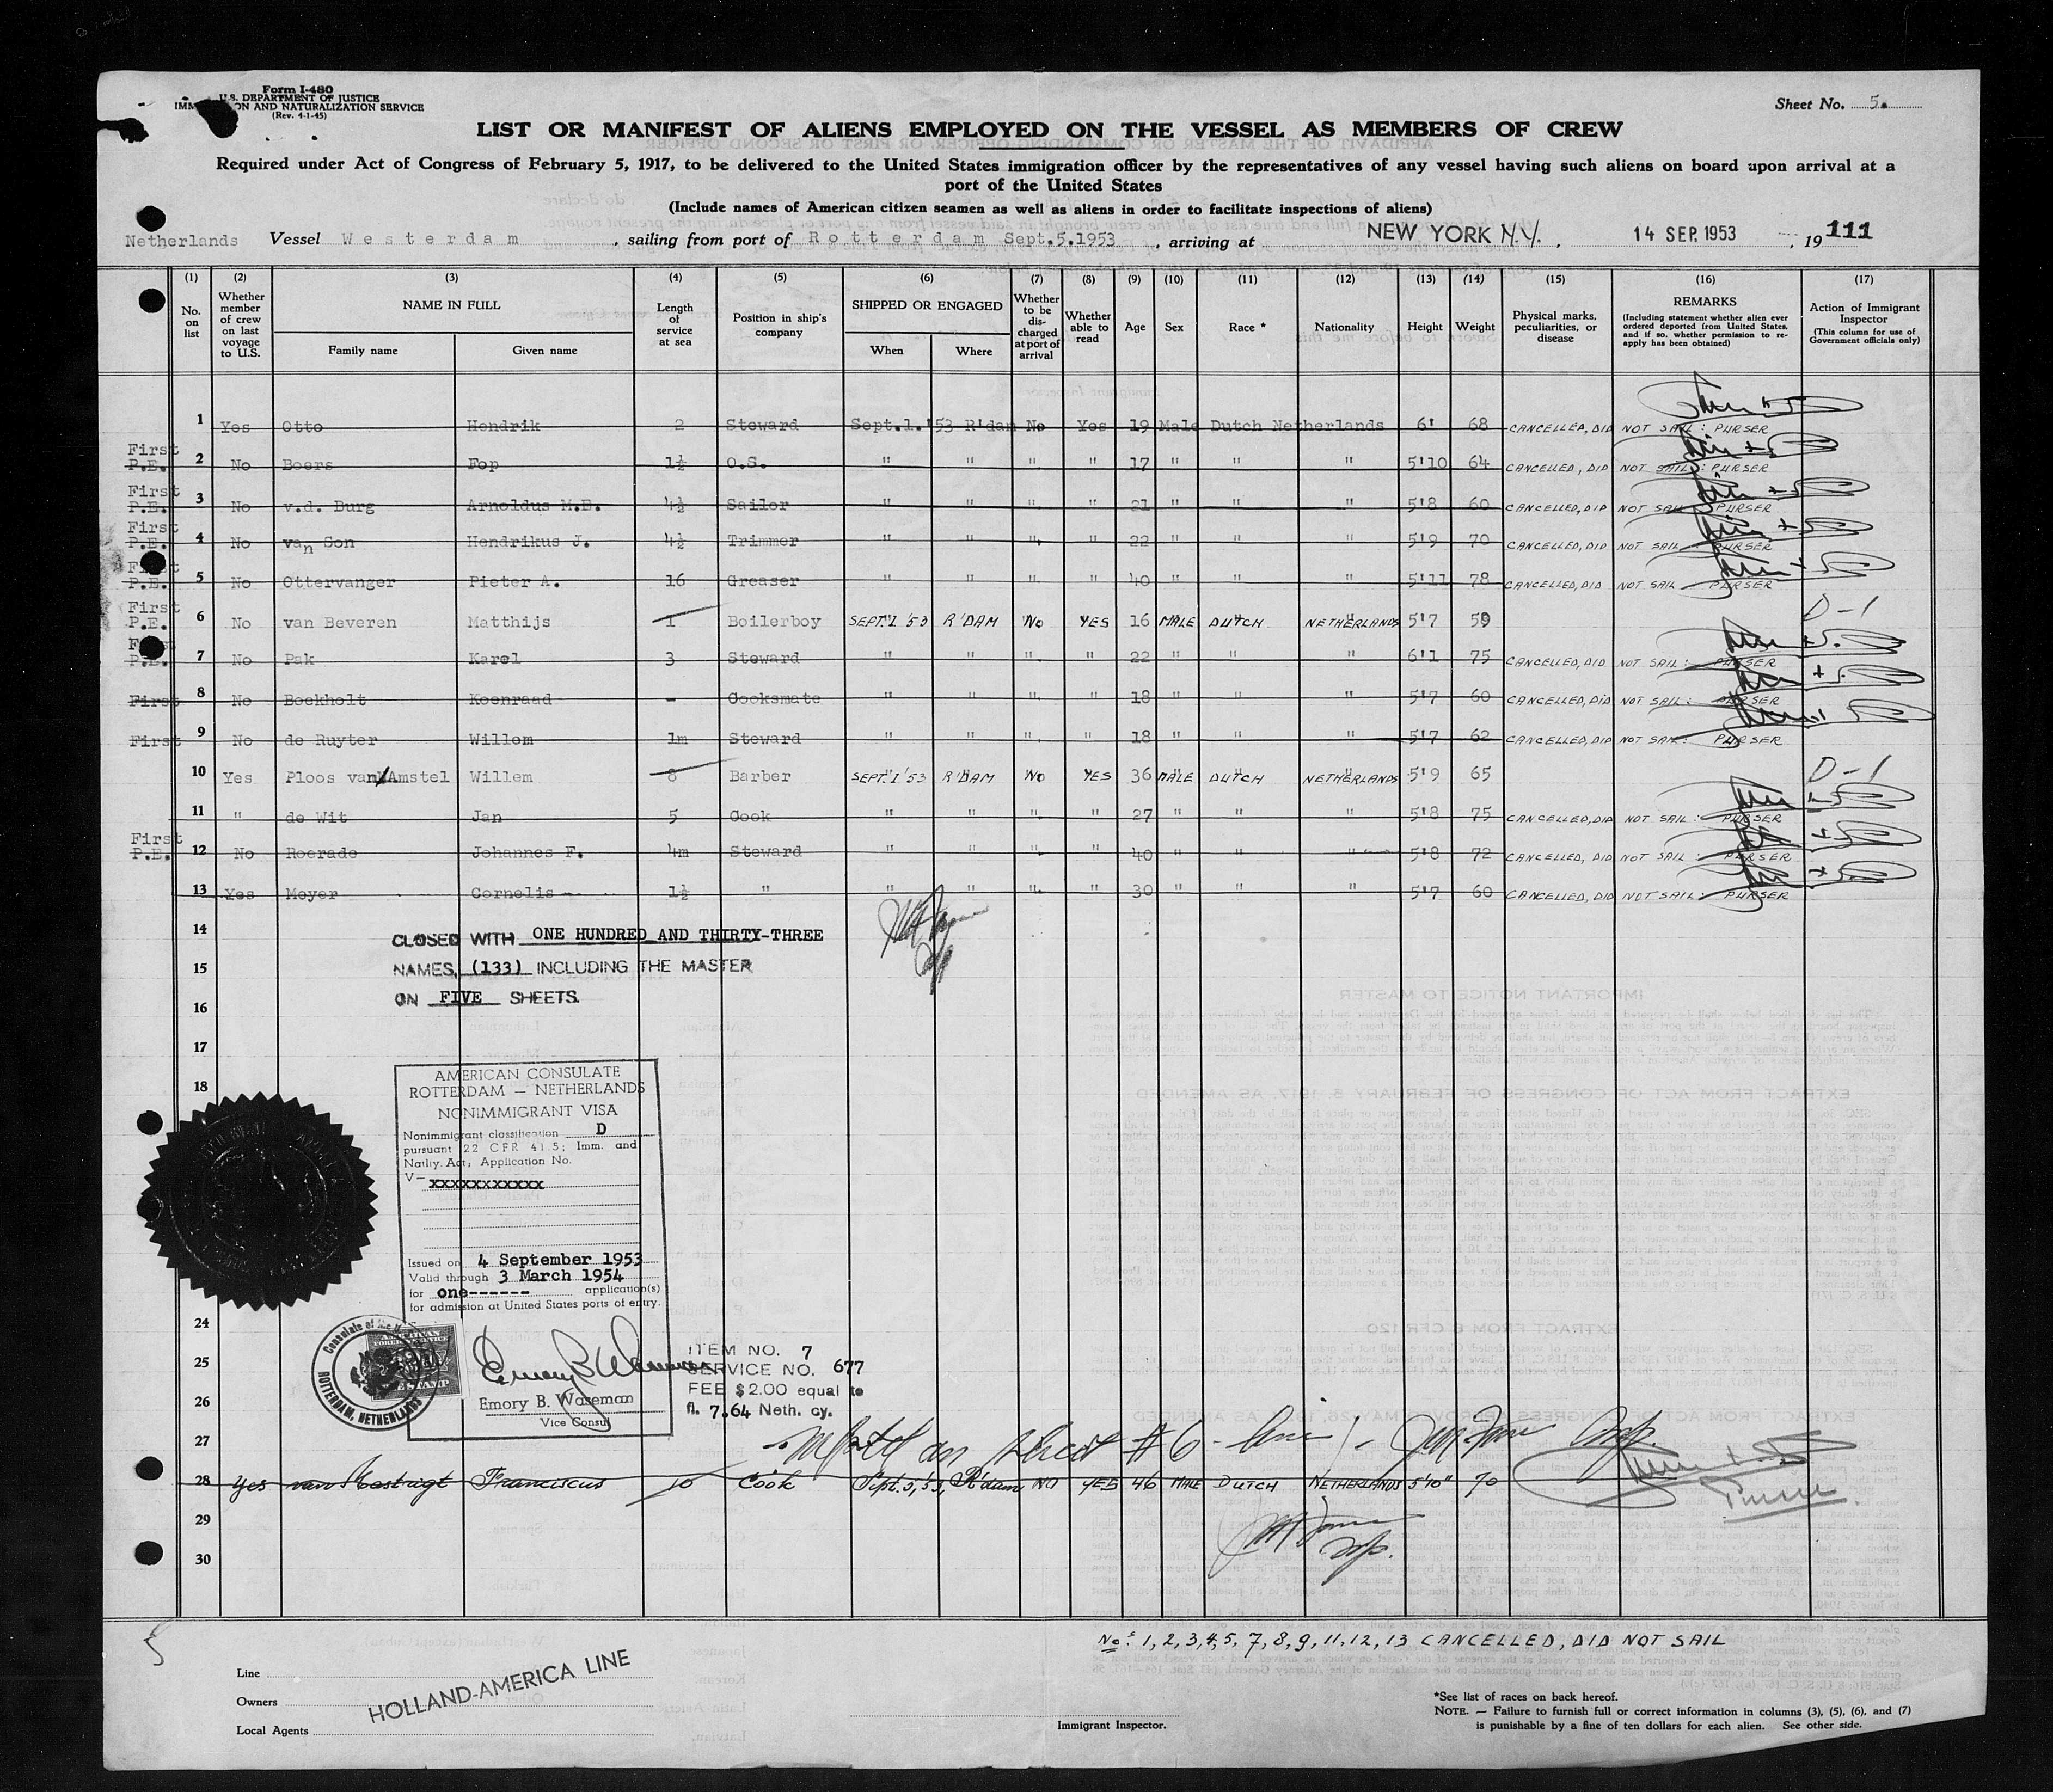 Form I-480
U.S. DEPARTMENT OF JUSTICE
IMM ON AND NATURALIZATION SERVICE
(Rev. 4-1-45)
Sheet No. 5.
LIST OR MANIFEST OF ALIENS EMPLOYED ON THE VESSEL AS MEMBERS OF CREW
Required under Act of Congress of February 5, 1917, to be delivered to the United States immigration officer by the representatives of any vessel having such aliens on board upon arrival at a
port of the United States
(Include names of American citizen seamen as well as aliens in order to facilitate inspections of aliens)
Netherlands Vessel Westerdam, sailing from port of Rotterdam Sept.5.1953, arriving at NEW YORK N.Y., 14 SEP. 1953, 19 111
(1) (2) (3) (4) (5) (6) (7) (8) (9) (10) (11) (12) (13) (14) (15) (16) (17)
No. on list
Whether member of crew on last voyage to U.S.
NAME IN FULL
Family name
Given name
Length of service at sea
Position in ship's company
SHIPPED OR ENGAGED
When
Where
Whether to be discharged at port of arrival
Whether able to read
Age
Sex
Race *
Nationality
Height
Weight
Physical marks, peculiarities, or disease
REMARKS
(Including statement whether alien ever ordered deported from United States, and if so, whether permission to re-apply has been obtained)
Action of Immigrant Inspector
(This column for use of Government officials only)
1 Yes Otto Hendrik 2 Steward Sept.1.'53 R'dam No Yes 19 Male Dutch Netherlands 6' 68 CANCELLED, DID NOT SAIL: PURSER
First P.E. 2 No Boers Fop 1½ O.S. " " " " 17 " " " 5'10 64 CANCELLED, DID NOT SAIL: PURSER
First P.E. 3 No v.d. Burg Arnoldus M.B. 4½ Sailor " " " " 21 " " " 5'8 60 CANCELLED, DID NOT SAIL PURSER
First P.E. 4 No van Son Hendrikus J. 4½ Trimmer " " " " 22 " " " 5'9 70 CANCELLED, DID NOT SAIL PURSER
First P.E. 5 No Ottervanger Pieter A. 16 Greaser " " " " 40 " " " 5'11 78 CANCELLED, DID NOT SAIL PURSER
First P.E. 6 No van Beveren Matthijs 1 Boilerboy SEPT.1 '53 R'DAM No YES 16 MALE DUTCH NETHERLANDS 5'7 59 D-1
First P.E. 7 No Pak Karel 3 Steward " " " " 22 " " " 6'1 75 CANCELLED, DID NOT SAIL: PURSER
First 8 No Boekholt Koenraad - Cooksmate " " " " 18 " " " 5'7 60 CANCELLED, DID NOT SAIL: PURSER
First 9 No de Ruyter Willem 1m Steward " " " " 18 " " " 5'7 62 CANCELLED, DID NOT SAIL: PURSER
10 Yes Ploos van Amstel Willem 8 Barber SEPT.1 '53 R'DAM No YES 36 MALE DUTCH NETHERLANDS 5'9 65 D-1
11 " de Wit Jan 5 Cook " " " " 27 " " " 5'8 75 CANCELLED, DID NOT SAIL: PURSER
First P.E. 12 No Roerade Johannes F. 4m Steward " " " " 40 " " " 5'8 72 CANCELLED, DID NOT SAIL: PURSER
13 Yes Meyer Cornelis 1½ " " " " " 30 " " " 5'7 60 CANCELLED, DID NOT SAIL PURSER
14
CLOSED WITH ONE HUNDRED AND THIRTY-THREE
15
NAMES, (133) INCLUDING THE MASTER
ON FIVE SHEETS.
16
17
18
AMERICAN CONSULATE
ROTTERDAM — NETHERLANDS
NONIMMIGRANT VISA
Nonimmigrant classification D
pursuant 22 CFR 41.5; Imm. and
Natlty. Act; Application No.
V— XXXXXXXXXXX
Issued on 4 September 1953
Valid through 3 March 1954
for one------ application(s)
for admission at United States ports of entry.
24
Consulate of the
ROTTERDAM, NETHERLANDS
AMERICAN
FOREIGN SERVICE
STAMP
Emory B. Waseman
Emory B. Waseman
Vice Consul
ITEM NO. 7
SERVICE NO. 677
FEE $2.00 equal to
fl. 7.64 Neth. cy.
25
26
27 on sheet #6 - line 1 -
28 Yes van Mastrigt Franciscus 10 Cook Sept.5,'53, R'dam NO YES 46 MALE DUTCH NETHERLANDS 5'10" 70
Purser.
29
30
5
No.s 1, 2, 3, 4, 5, 7, 8, 9, 11, 12, 13 CANCELLED, DID NOT SAIL
Line
Owners
Local Agents
HOLLAND-AMERICA LINE
Immigrant Inspector.
*See list of races on back hereof.
NOTE. — Failure to furnish full or correct information in columns (3), (5), (6), and (7)
is punishable by a fine of ten dollars for each alien. See other side.